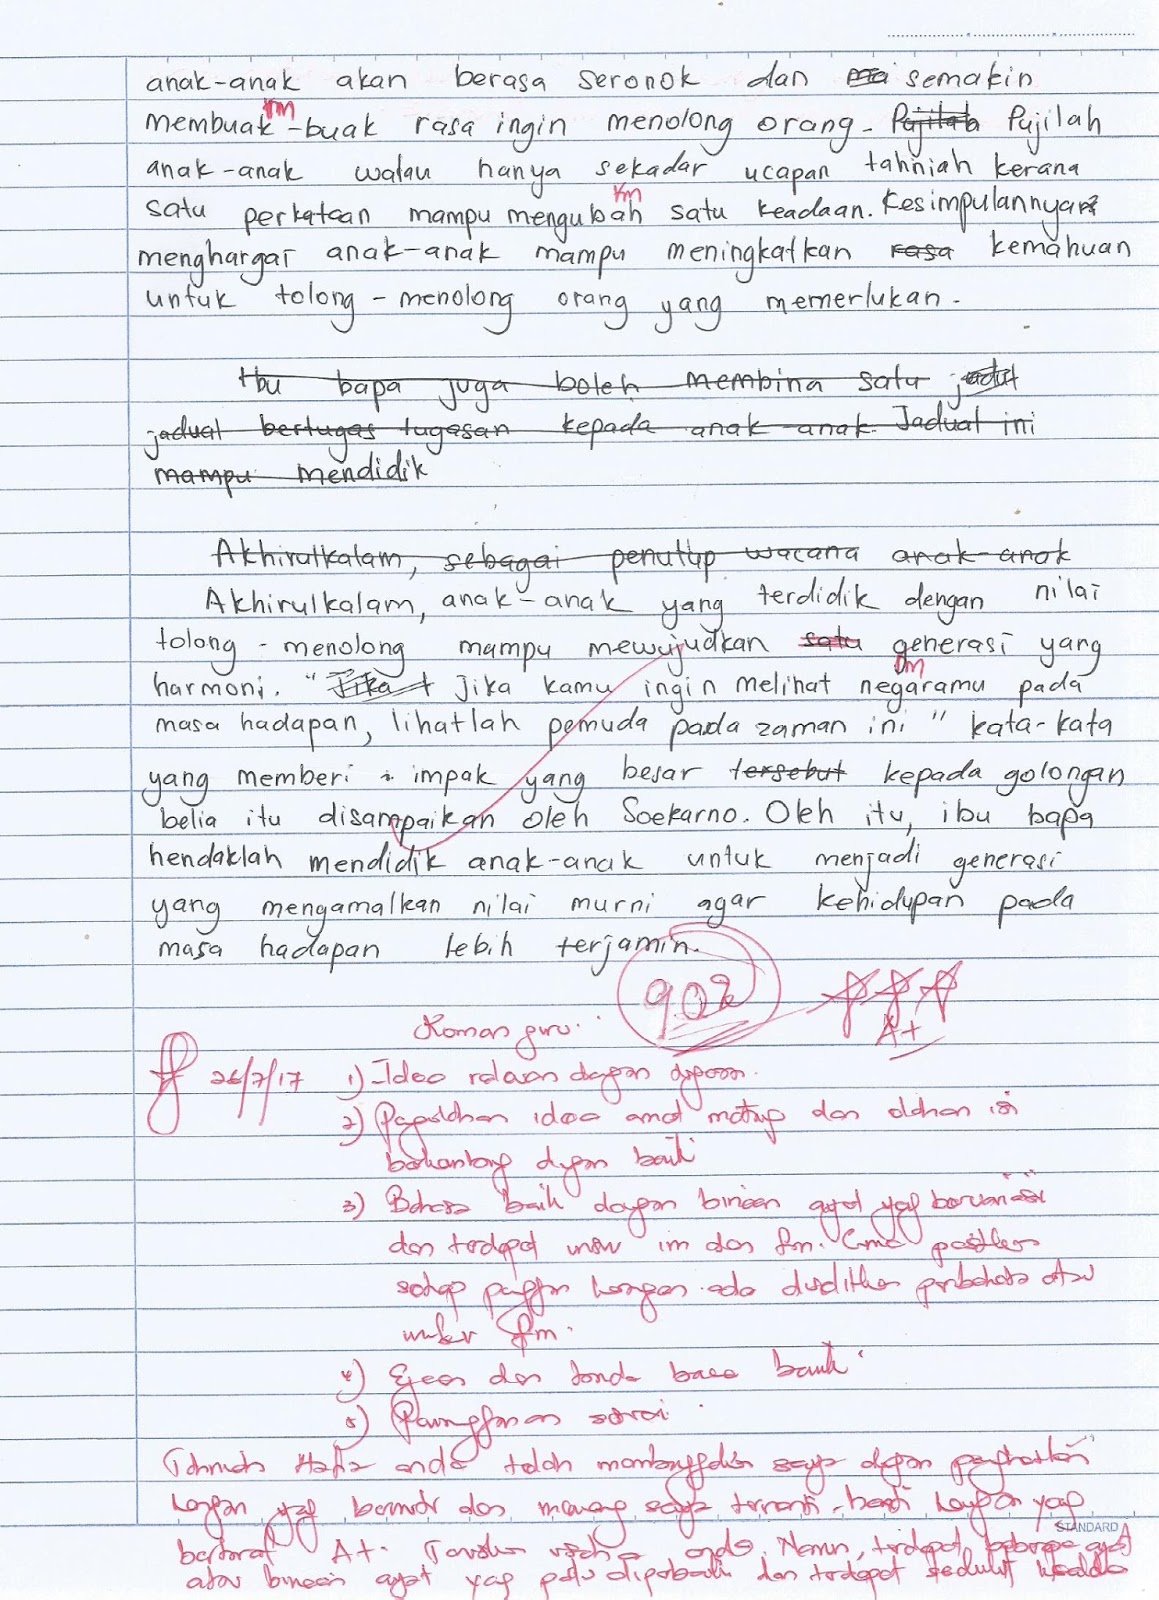 anak-anak akan berasa seronok dan ma semakin
rm
membuak-buak rasa ingin menolong orang. Pujilah Pujilah
anak-anak walau hanya sekadar ucapan tahniah kerana
rm
satu perkataan mampu mengubah satu keadaan. Kesimpulannya
menghargai anak-anak mampu meningkatkan rasa kemahuan
untuk tolong-menolong orang yang memerlukan.
Ibu bapa juga boleh membina satu jadual
jadual bertugas tugasan kepada anak-anak. Jadual ini
mampu mendidik
Akhirulkalam, sebagai penutup wacana anak-anak
Akhirulkalam, anak-anak yang terdidik dengan nilai
tolong-menolong mampu mewujudkan satu generasi yang
harmoni. "Jika Jika kamu ingin melihat negaramu pada
masa hadapan, lihatlah pemuda pada zaman ini" kata-kata
yang memberi impak yang besar tersebut kepada golongan
belia itu disampaikan oleh Soekarno. Oleh itu, ibu bapa
hendaklah mendidik anak-anak untuk menjadi generasi
yang mengamalkan nilai murni agar kehidupan pada
masa hadapan lebih terjamin.
90%
A+
Komen guru:
26/7/17 1) Idea relevan dengan
2) Pengolahan idea amat matang dan olahan isi
dengan baik
3) Bahasa baik dengan binaan ayat yang
dan terdapat unsur im dan fm.
setiap karangan ada peribahasa atau
unsur fm.
4) Ejaan dan tanda baca baik.
5) Penanggaman sesuai.
Tahniah anda telah membanggakan saya dengan penghasilan
karangan yang bermutu dan memang saya karangan yang
bertaraf A+. Teruskan usaha anda. Namun, terdapat beberapa ayat
atau binaan ayat yang perlu diperbaiki dan terdapat sedikit
STANDARD